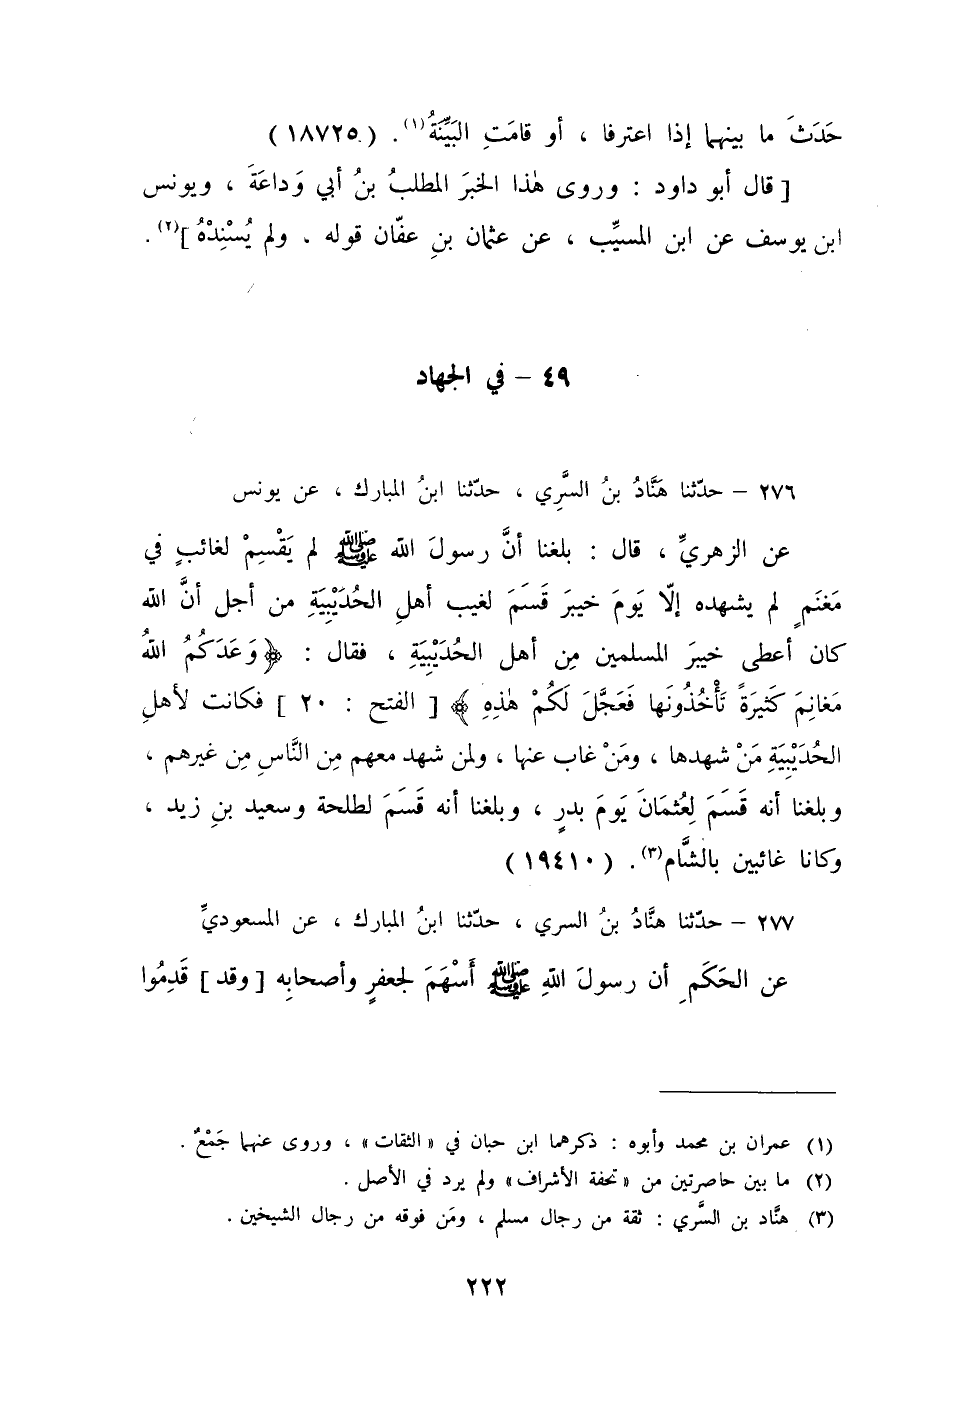 حَدَثَ ما بينهما إذا اعترفا ، أو قامَتِ البَيِّنَةُ(١) . ( ١٨٧٢٥ )
[ قال أبو داود : وروى هٰذا الخبرَ المطلبُ بنُ أبي وَداعَةَ ، ويونس
ابن يوسف عن ابن المسيِّب ، عن عثمان بنِ عفّان قوله . ولم يُسْنِدْهُ ](٢) .
٤٩ – في الجهاد
٢٧٦ – حدّثنا هَنَّادُ بنُ السَّرِي ، حدّثنا ابنُ المبارك ، عن يونس
عن الزهريِّ ، قال : بلغنا أنَّ رسولَ الله ﷺ لم يَقْسِمْ لغائبٍ في
مَغنَمٍ لم يشهده إلّا يَومَ خيبرَ قَسَمَ لغيب أهلِ الحُدَيْبِيَةِ من أجل أنَّ الله
كان أعطى خيبرَ المسلمين مِن أهل الحُدَيْبِيَةِ ، فقال : ﴿ وَعَدَكُمُ اللهُ
مَغانِمَ كَثيرَةً تَأْخُذُونَها فَعَجَّلَ لَكُمْ هٰذِهِ ﴾ [ الفتح : ٢٠ ] فكانت لأهلِ
الحُدَيْبِيَةِ مَنْ شهدها ، ومَنْ غاب عنها ، ولمن شهد معهم مِن النَّاسِ مِن غيرهم ،
وبلغنا أنه قَسَمَ لِعُثمَانَ يَومَ بدرٍ ، وبلغنا أنه قَسَمَ لطلحة وسعيد بنِ زيد ،
وكانا غائبين بالشَّام(٣) . ( ١٩٤١٠ )
٢٧٧ – حدّثنا هنَّادُ بنُ السري ، حدّثنا ابنُ المبارك ، عن المسعوديِّ
عن الحَكَمِ أن رسولَ اللهِ ﷺ أَسْهَمَ لجعفرٍ وأصحابِه [ وقد ] قَدِمُوا
(١) عمران بن محمد وأبوه : ذكرهما ابن حبان في «الثقات» ، وروى عنهما جَمْعٌ .
(٢) ما بين حاصرتين من «تحفة الأشراف» ولم يرد في الأصل .
(٣) هنَّاد بن السَّري : ثقة من رجال مسلم ، ومَن فوقه من رجال الشيخين .
٢٢٢